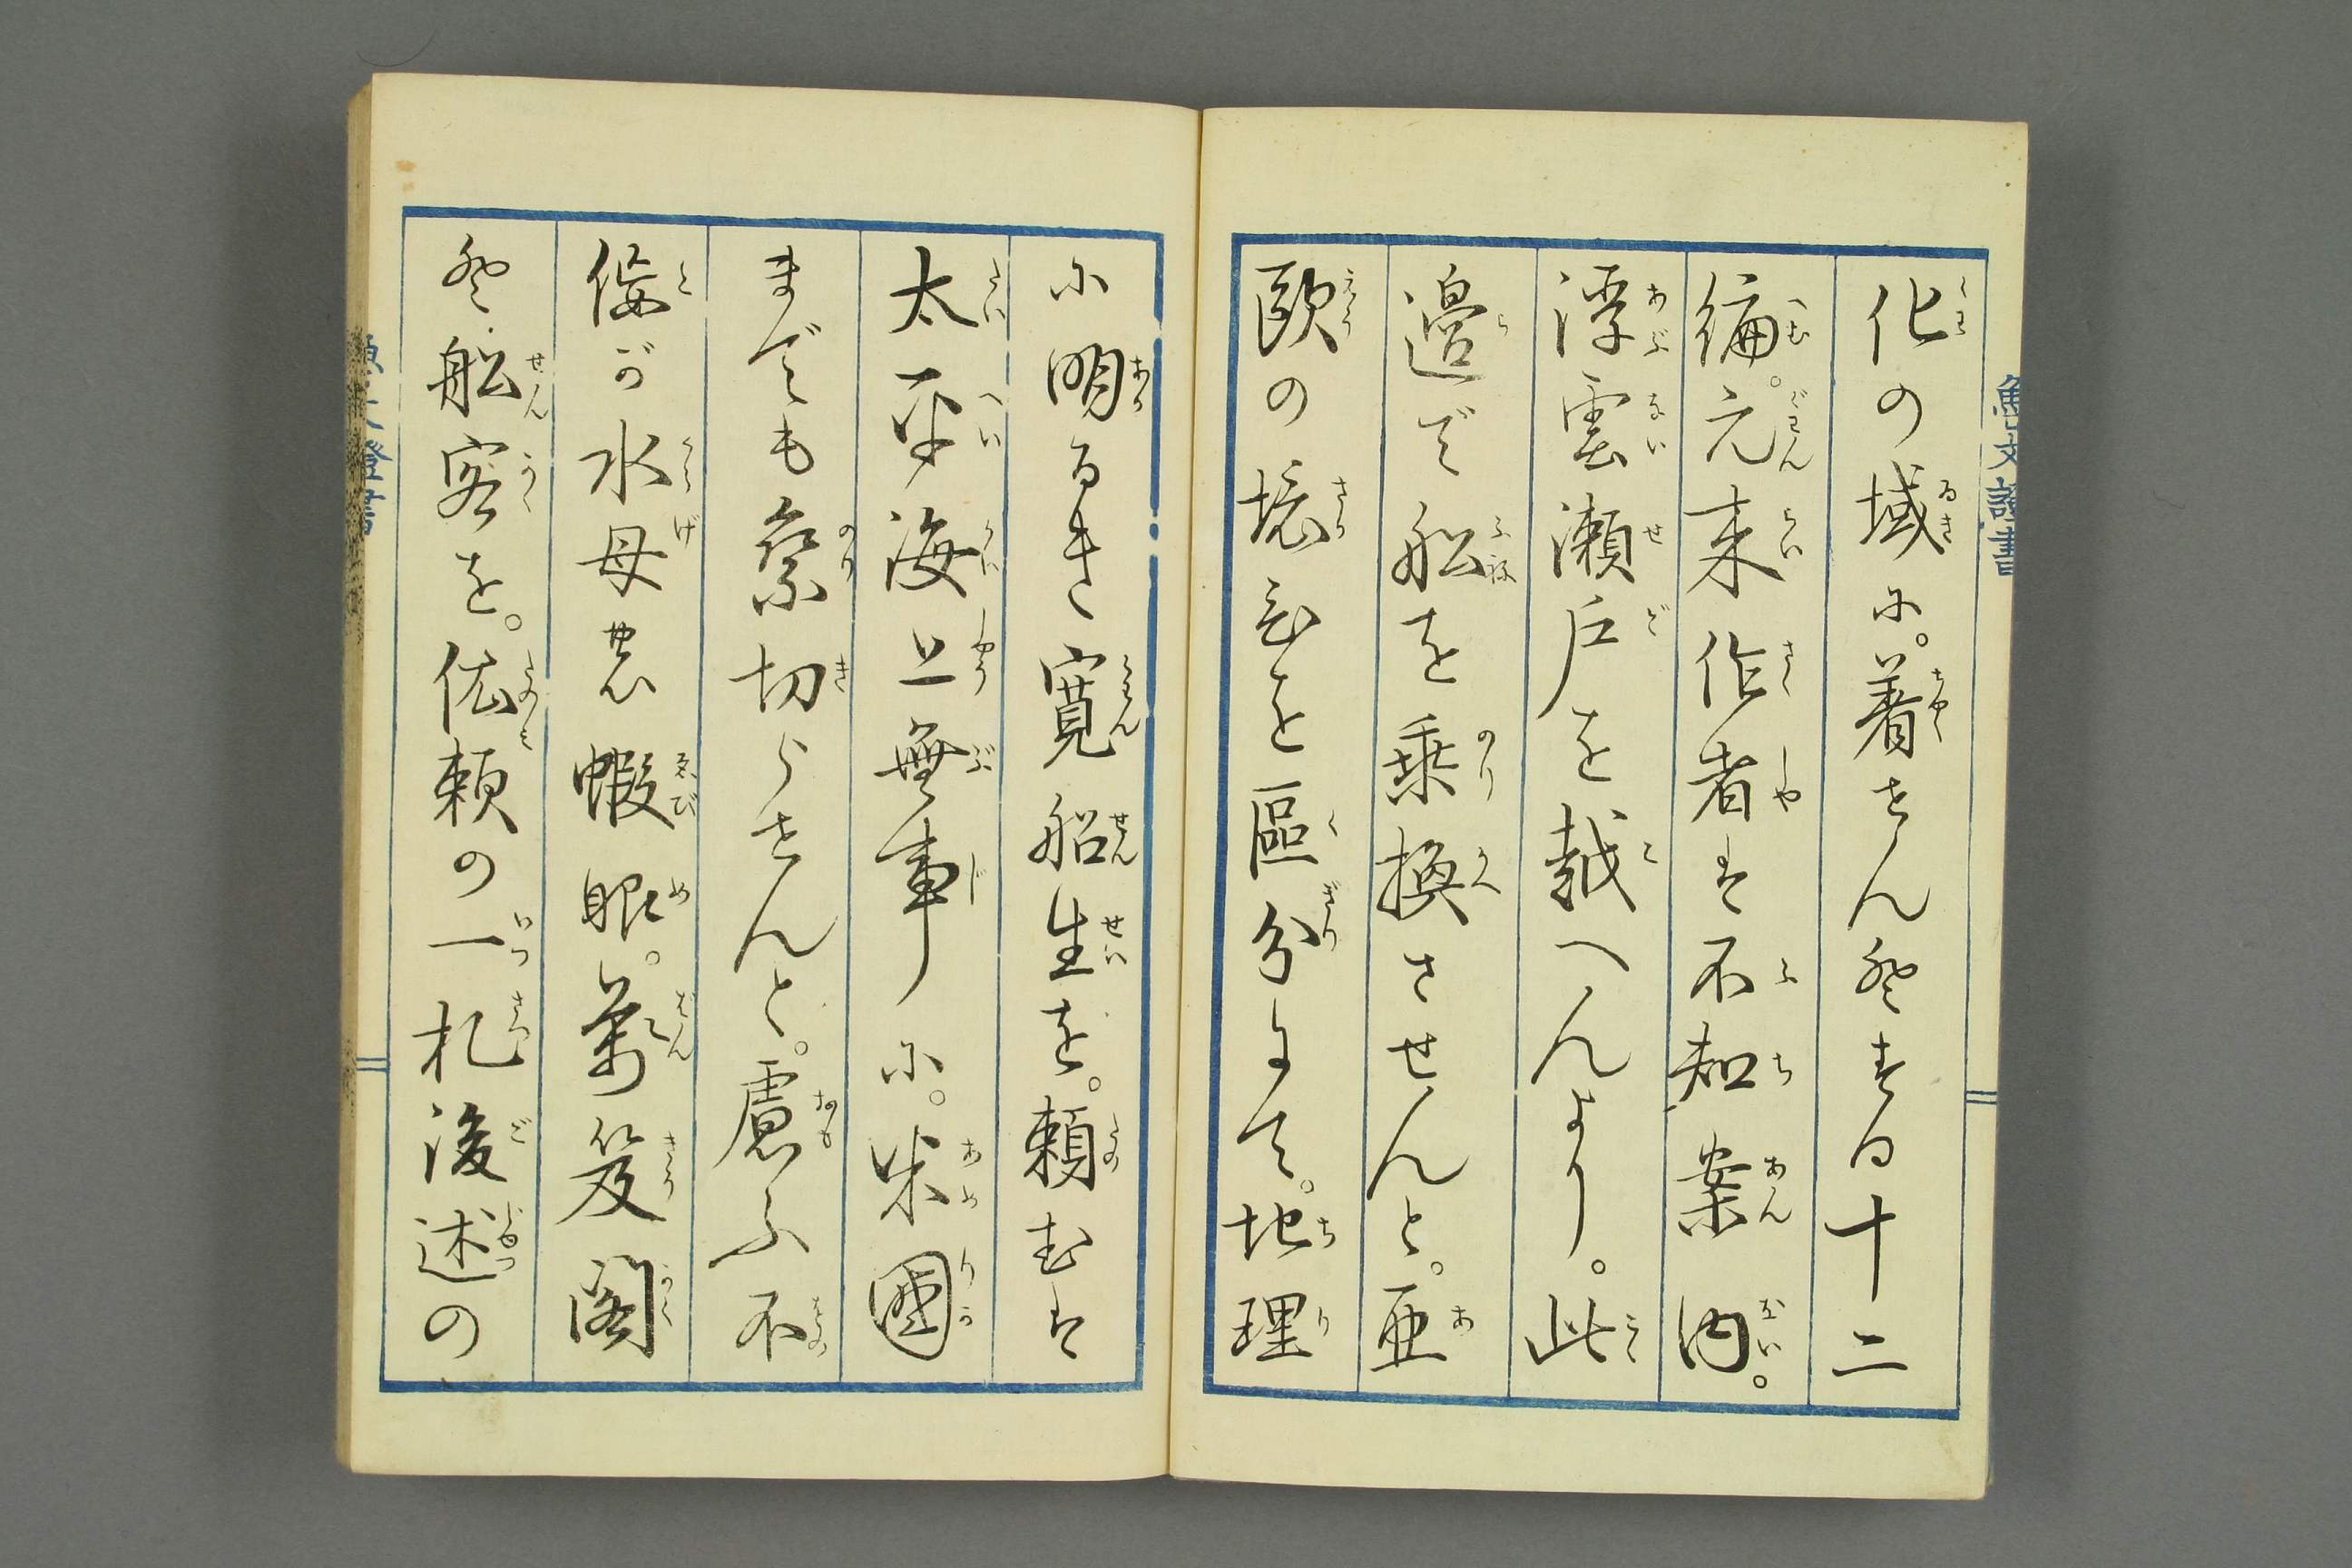 魯文證書
化の域に。着せんとする十二
編。元来作者は不知案内。
浮雲瀬戸を越へんより。此
邉で船を乗換させんと。亜
欧の境ひを區分にて。地理
に明るき寛船生を。頼むは
太平海上無事に。米國
までも乗切らせんと。慮ふ不
佞が水母の蝦眼。萬笈閣
と船客を。依頼の一札後述の